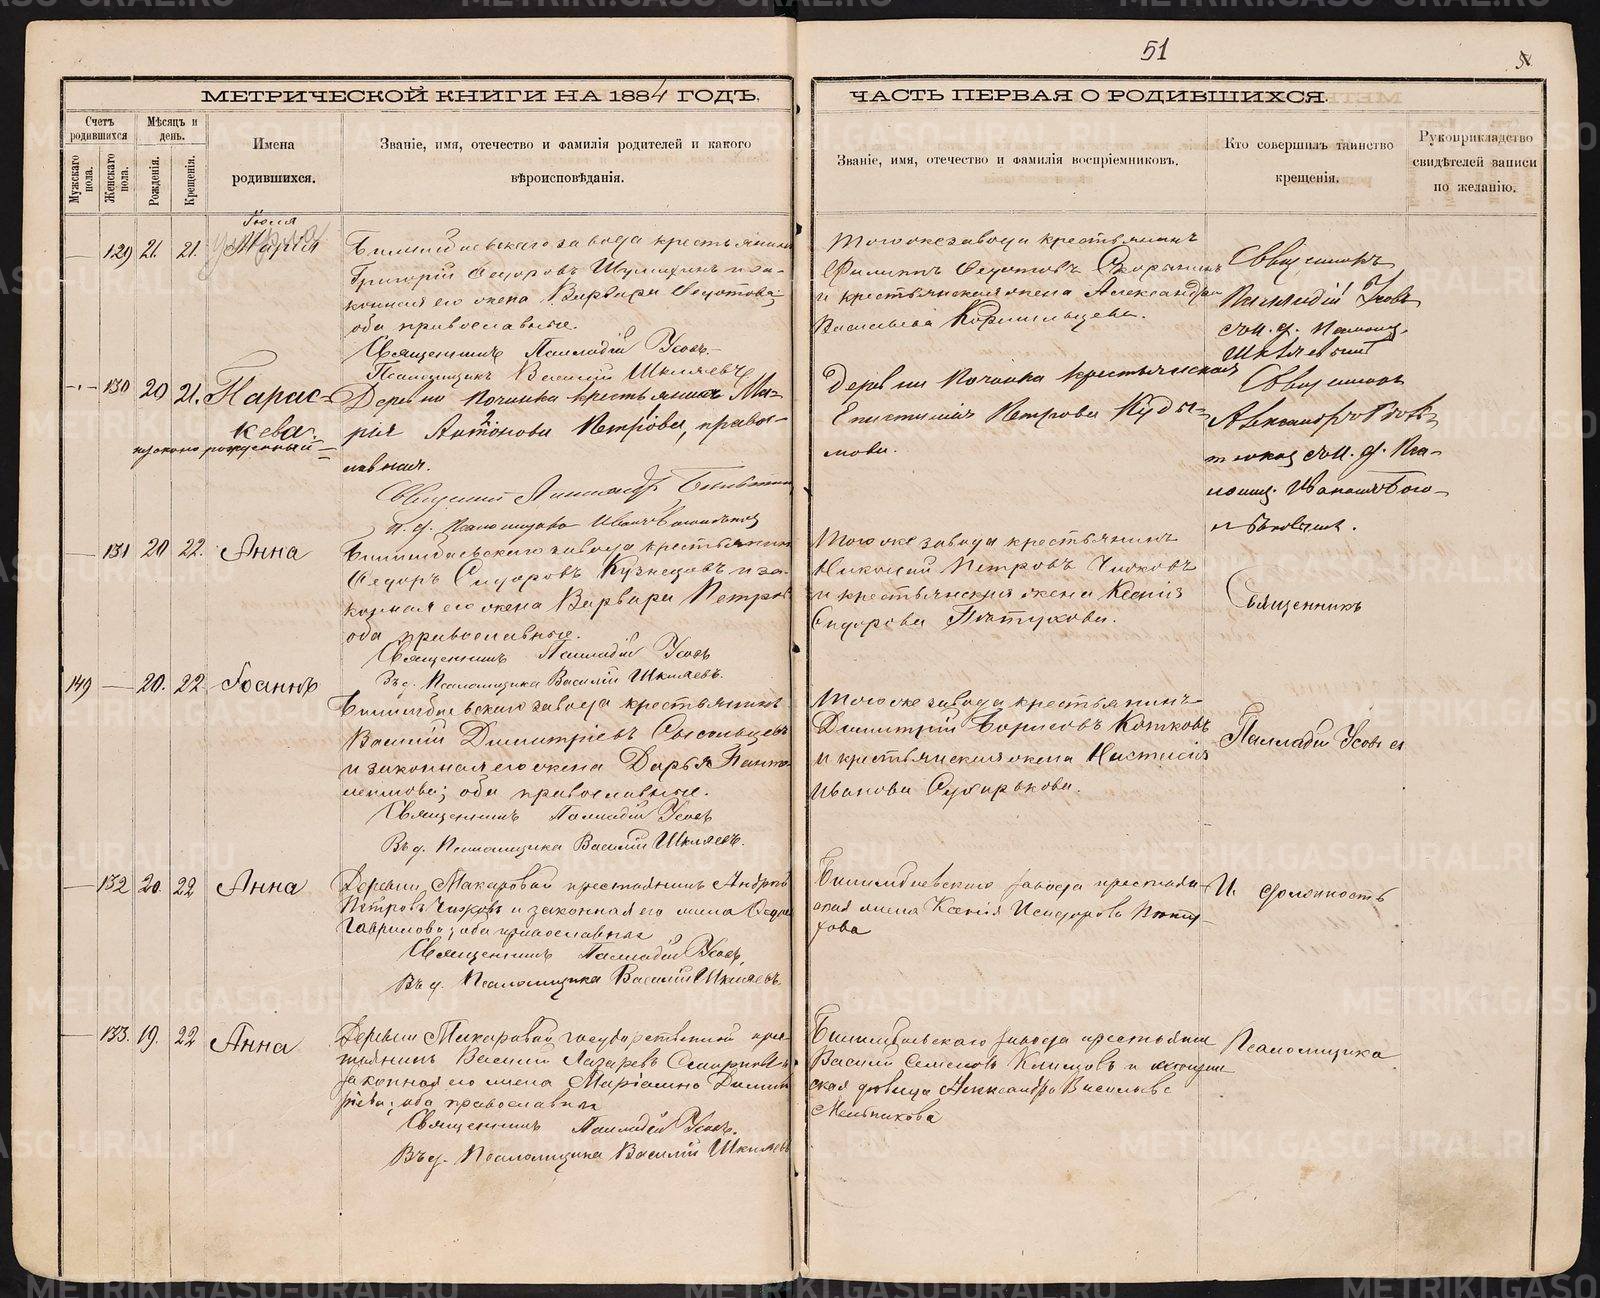 51
МЕТРИЧЕСКОЙ КНИГИ НА 1884 ГОДЪ,
ЧАСТЬ ПЕРВАЯ О РОДИВШИХСЯ.
Счетъ родившихся
Мужскаго пола.
Женскаго пола.
Мѣсяцъ и день.
Рожденія.
Крещенія.
Имена родившихся.
Званіе, имя, отечество и фамилія родителей и какого вѣроисповѣданія.
Званіе, имя, отечество и фамилія воспріемниковъ.
Кто совершилъ таинство крещенія.
Рукоприкладство свидѣтелей записи по желанію.
Іюля
129 21. 21. Марія
Билимбаевскаго завода крестьянинъ
Григорій Федоровъ и за-
конная его жена Варвара Федотова;
оба православные.
Священникъ Палладій Усовъ.
Псаломщикъ Василій Шкляевъ
Тогоже завода крестьянинъ
Филиппъ Федотовъ
и крестьянская жена Александра
Васильева Кормильцева.
Священникъ
Палладій Усовъ
съ и. д. Псаломщ.
Шкляевымъ
130 20 21. Парас-
кева.
незаконнорожденный
Деревни Починка крестьянка Ма-
рія Антонова Петрова, право-
славная.
Священникъ Александръ
и. д. Псаломщика Иванъ
Деревни Починка крестьянская
Епистимія Петрова Кузь-
мова.
Священникъ
Александръ
съ и. д. Пса-
ломщ. Иваномъ Бого-
131 20 22. Анна
Билимбаевскаго завода крестьянинъ
Федоръ Сидоровъ Кузнецовъ и за-
конная его жена Варвара Петрова
оба православные.
Священникъ Палладій Усовъ
Въ д. Псаломщика Василій Шкляевъ.
Тогоже завода крестьянинъ
Николай Петровъ Чижовъ
и крестьянская жена Ксенія
Сидорова Пятухова.
Священникъ
149 20. 22. Іоаннъ
Билимбаевскаго завода крестьянинъ
Василій Димитріевъ Сысольцевъ
и законная его жена Дарья Панте-
леимова; оба православные.
Священникъ Палладій Усовъ
Въ д. Псаломщика Василій Шкляевъ.
Тогоже завода крестьянинъ
Димитрій Борисовъ Котковъ
и крестьянская жена Настасія
Иванова Сухарькова.
Палладій Усовъ съ
132 20. 22 Анна
Деревни Макаровой крестьянинъ Андрей
Петровъ Чижовъ и законная его жена
Гаврилова; оба православныя
Священникъ Палладій Усовъ,
Въ д. Псаломщика Василій Шкляевъ.
Билимбаевскаго завода крестьян-
ская жена Ксенія Исидорова Пяту-
хова
И. должность
133. 19. 22 Анна
Деревни Макаровой государственной крес-
тьянинъ Василій Лазаревъ Смирновъ
законная его жена Маріамна Димит-
ріева; оба православныя
Священникъ Палладій Усовъ.
Въ д. Псаломщика Василій Шкляевъ
Билимбаевскаго завода крестьянин
Василій Семеновъ Климовъ и
ская дѣвица Александра Васильева
Мельникова
Псаломщика